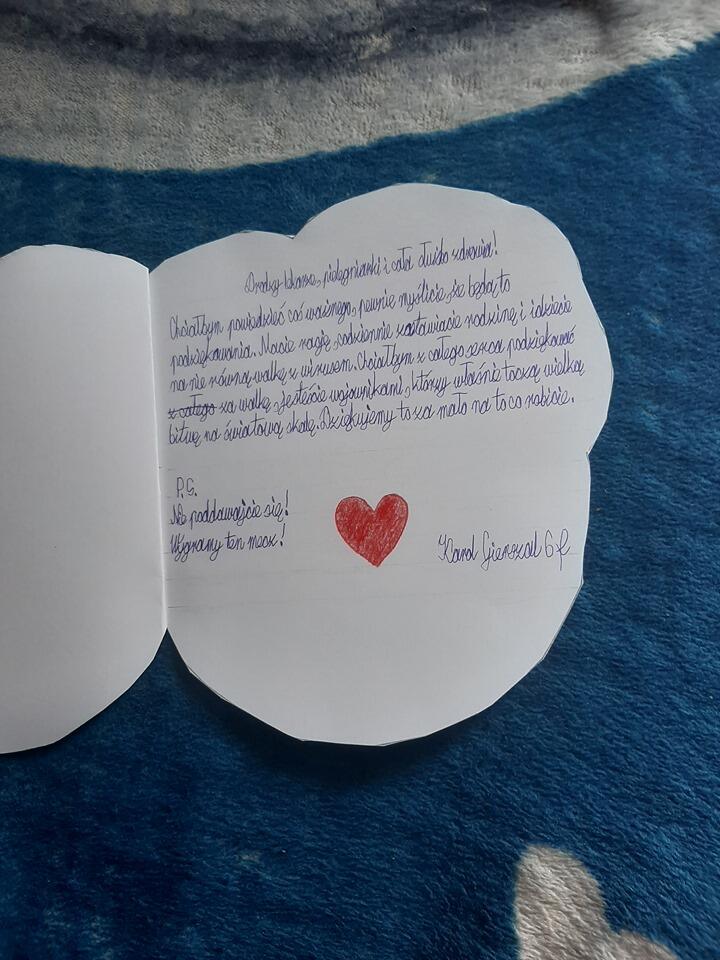 Drodzy lekarze, pielęgniarki i cała służbo zdrowia!
Chciałbym powiedzieć coś ważnego, pewnie myślicie, że będą to
podziękowania. Macie rację, codziennie zostawiacie rodzinę i idziecie
na nie równą walkę z wirusem. Chciałbym z całego serca podziękować
z całego za walkę, jesteście wojownikami, którzy właśnie toczą wielką
bitwę na światową skalę. Dziękujemy to za mało na to co robicie.
P.S.
Nie poddawajcie się!
Wygramy ten mecz!
Karol 6f